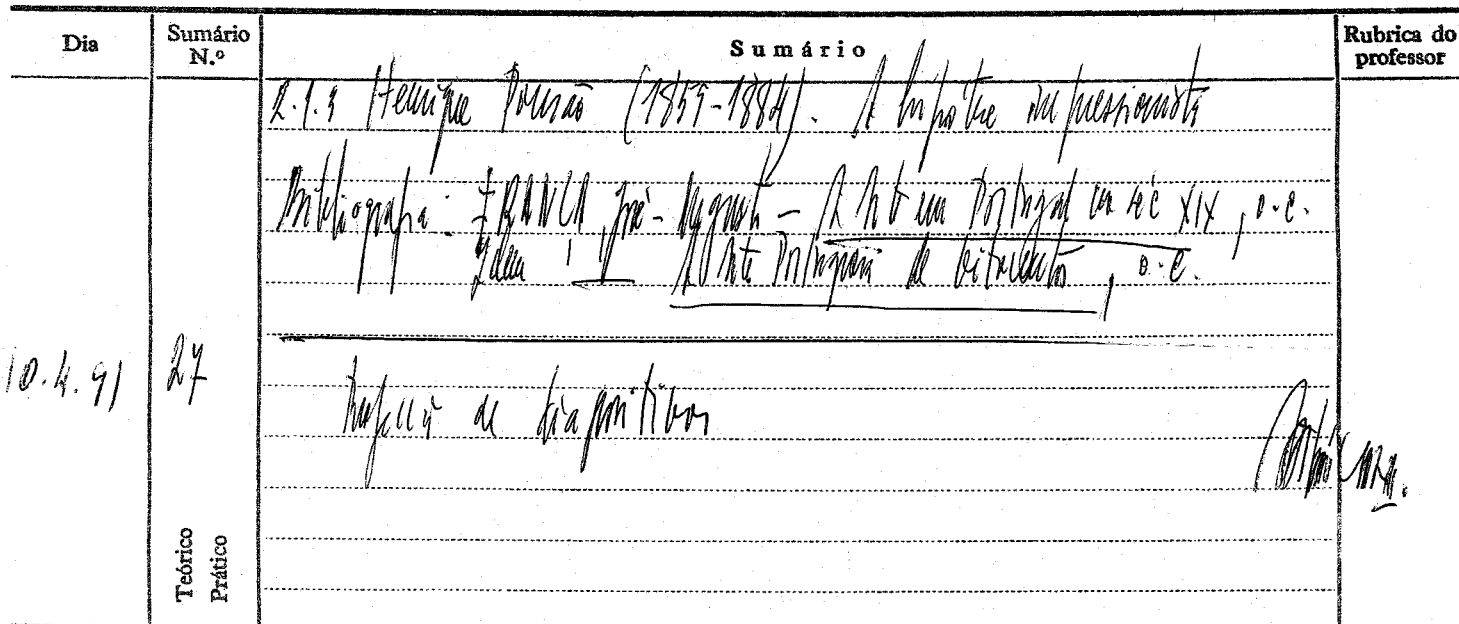 Dia Sumário N.º Sumário Rubrica do professor
2.1.3 Henrique Pousão (1859-1884). A hipótese impressionista
Bibliografia: FRANÇA, José-Augusto - A Arte em Portugal no séc XIX, o.c.
Idem, A Arte Portuguesa de Oitocentos, o.c.
10.4.91 27
Projecção de diapositivos
Teórico
Prático